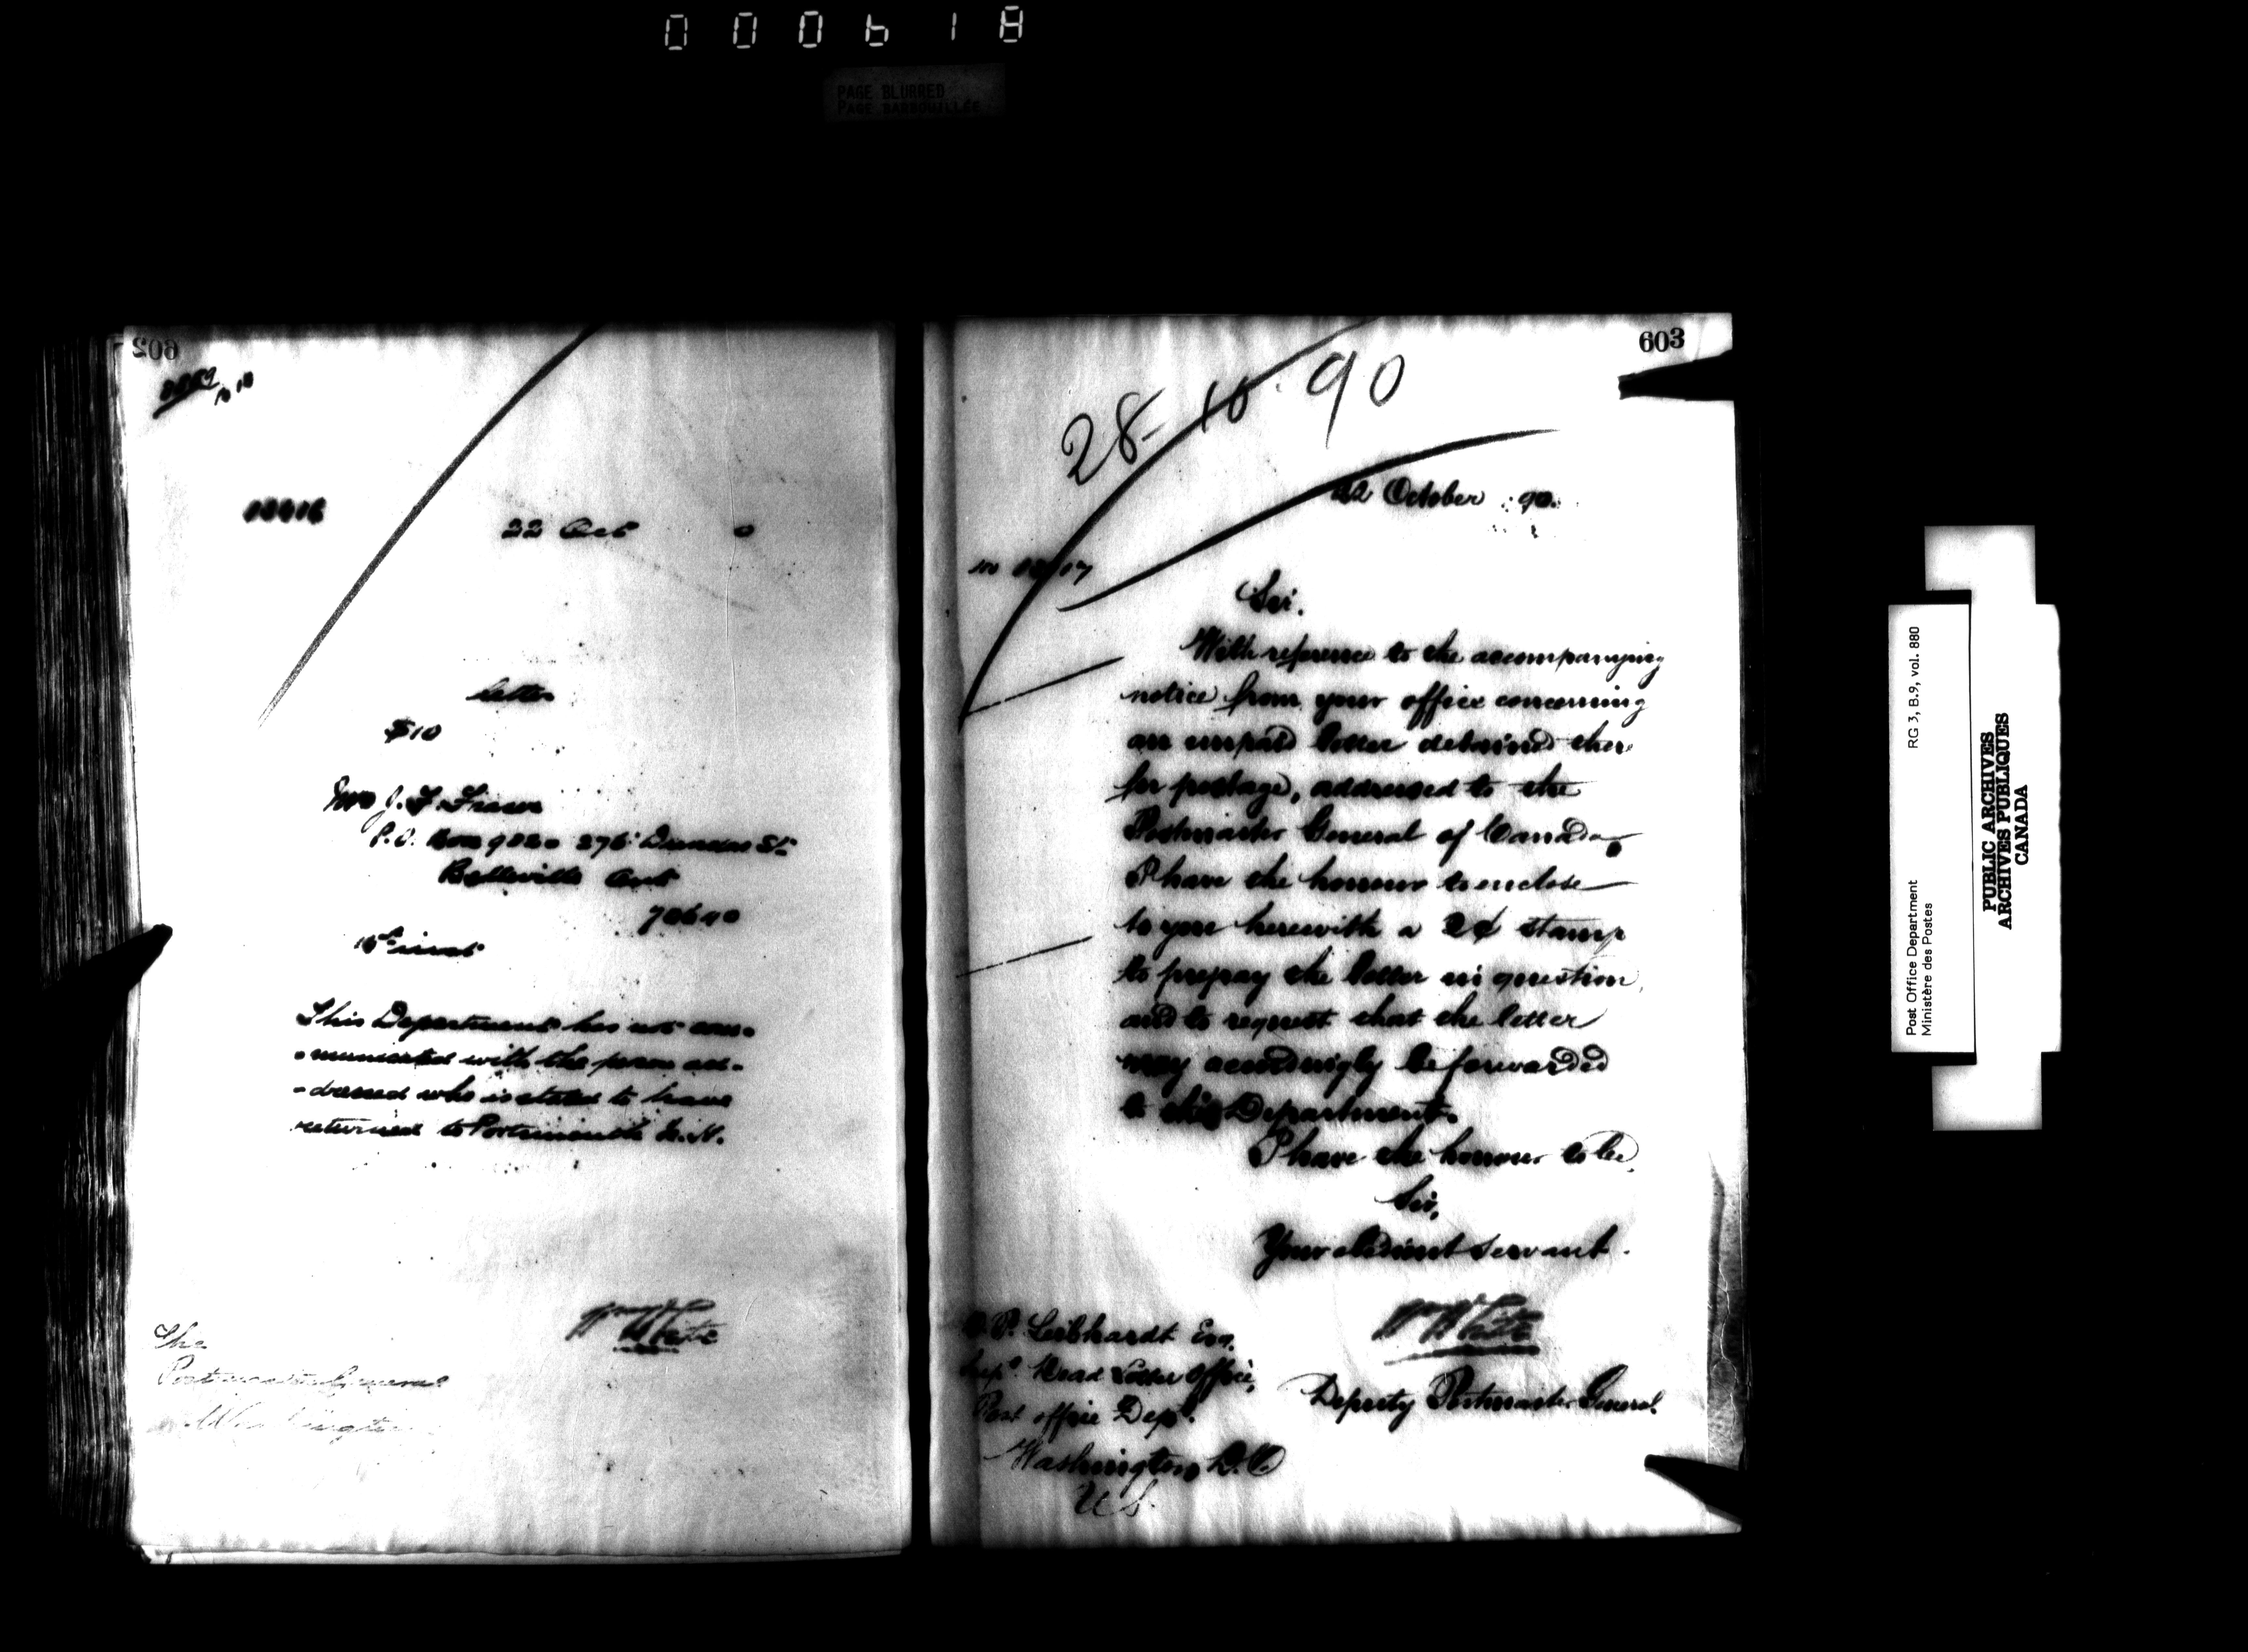 000618
PAGE BLURRED
PAGE BARBOUILLÉE
602
22 Oct 0
Letter
$10
J. F. Fraser
P.O. Box 982 276 Dundas St.
Belleville Ont
70640
15th inst
This Department has not com-
-municated with the person ad-
-dressed who is stated to have
returned to Portsmouth N.H.
W H White
The
Postmaster General
Washington
603
28-10-90
22 October 90.
Sir.
With reference to the accompanying
notice from your office concerning
an unpaid letter detained there
for postage, addressed to the
Postmaster General of Canada,
I have the honour to enclose
to you herewith a 2¢ stamp
to prepay the letter in question,
and to request that the letter
may accordingly be forwarded
to this Department.
I have the honour to be,
Sir,
Your obedient servant.
W H White
Deputy Postmaster General.
P. Leibhardt Esq.
Supt. Dead Letter Office,
Post Office Dept.
Washington, D.C.
U S
Post Office Department
Ministère des Postes
RG 3, B.9, vol. 880
PUBLIC ARCHIVES
ARCHIVES PUBLIQUES
CANADA